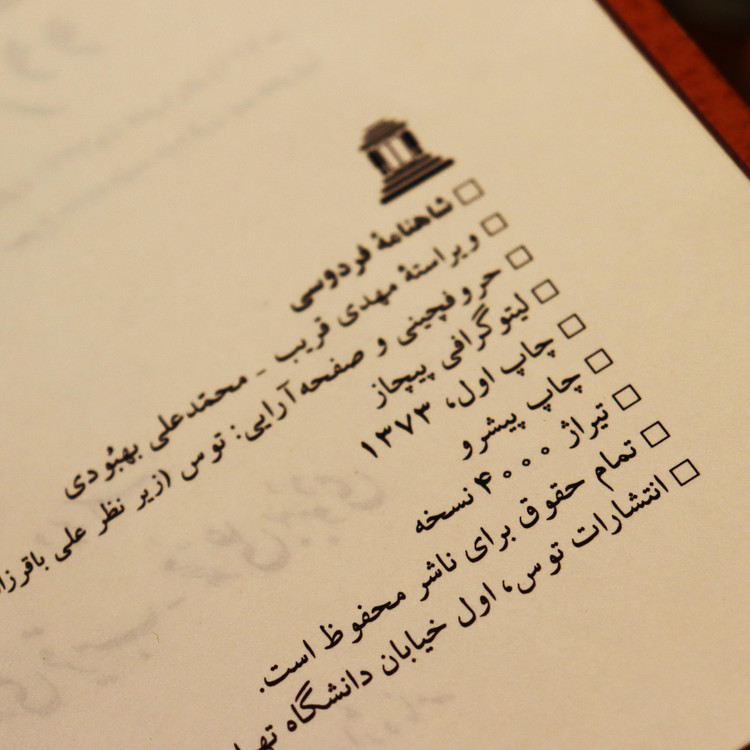 □ شاهنامهٔ فردوسی
□ ویراستهٔ مهدی قریب - محمّدعلی بهبُودی
□ حروفچینی و صفحه‌آرایی: توس (زیر نظر علی
□ لیتوگرافی پیچاز
□ چاپ اول، ۱۳۷۳
□ چاپ پیشرو
□ تیراژ ۴۰۰۰ نسخه
□ تمام حقوق برای ناشر محفوظ است.
□ انتشارات توس، اول خیابان دانشگاه